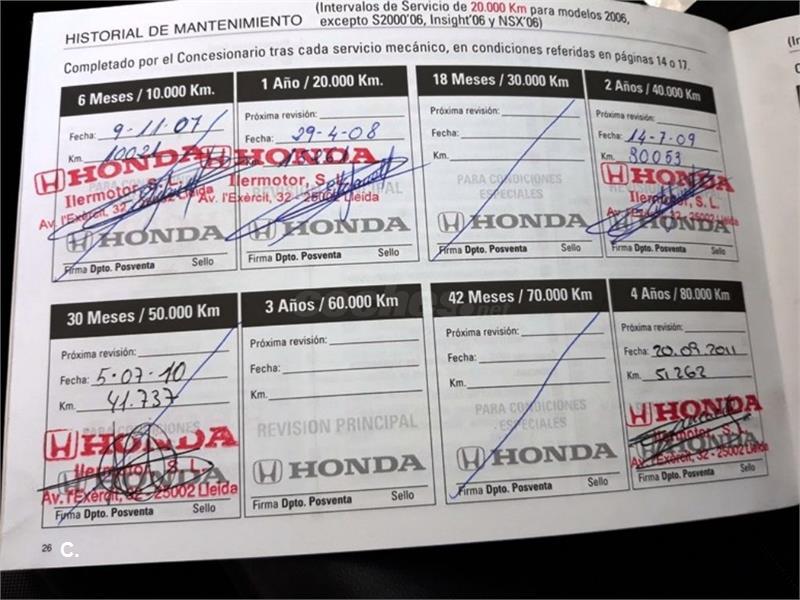 HISTORIAL DE MANTENIMIENTO
(Intervalos de Servicio de 20.000 Km para modelos 2006,
excepto S2000'06, Insight'06 y NSX'06)
Completado por el Concesionario tras cada servicio mecánico, en condiciones referidas en páginas 14 o 17.
6 Meses / 10.000 Km.
Fecha: 9-11-07
Km. 10021
PARA CONDICIONES
HONDA
Ilermotor, S.L.
Av. l'Exèrcit, 32 - 25002 Lleida
HONDA
Firma Dpto. Posventa Sello
1 Año / 20.000 Km.
Próxima revisión:
Fecha: 29-4-08
Km.
HONDA
Ilermotor, S.L.
Av. l'Exèrcit, 32 - 25002 Lleida
REVISIÓN PRINCIPAL
HONDA
Firma Dpto. Posventa Sello
18 Meses / 30.000 Km
Próxima revisión:
Fecha:
Km.
PARA CONDICIONES
ESPECIALES
HONDA
Firma Dpto. Posventa Sello
2 Años / 40.000 Km
Próxima revisión:
Fecha: 14-7-09
Km. 30053
HONDA
Ilermotor, S.L.
Av. l'Exèrcit, 32 - 25002 Lleida
HONDA
Firma Dpto. Posventa Sello
30 Meses / 50.000 Km
Próxima revisión:
Fecha: 5-07-10
Km. 41.737
PARA CONDICIONES
HONDA
Ilermotor, S.L.
Av. l'Exèrcit, 32 - 25002 Lleida
HONDA
Firma Dpto. Posventa Sello
3 Años / 60.000 Km
Próxima revisión:
Fecha:
Km.
REVISIÓN PRINCIPAL
HONDA
Firma Dpto. Posventa Sello
42 Meses / 70.000 Km
Próxima revisión:
Fecha:
Km.
PARA CONDICIONES
ESPECIALES
HONDA
Firma Dpto. Posventa Sello
4 Años / 80.000 Km
Próxima revisión:
Fecha: 20.09.2011
Km. 51262
HONDA
Ilermotor, S.L.
Av. l'Exèrcit, 32 - 25002 Lleida
HONDA
Firma Dpto. Posventa Sello
coches.net
26
C.